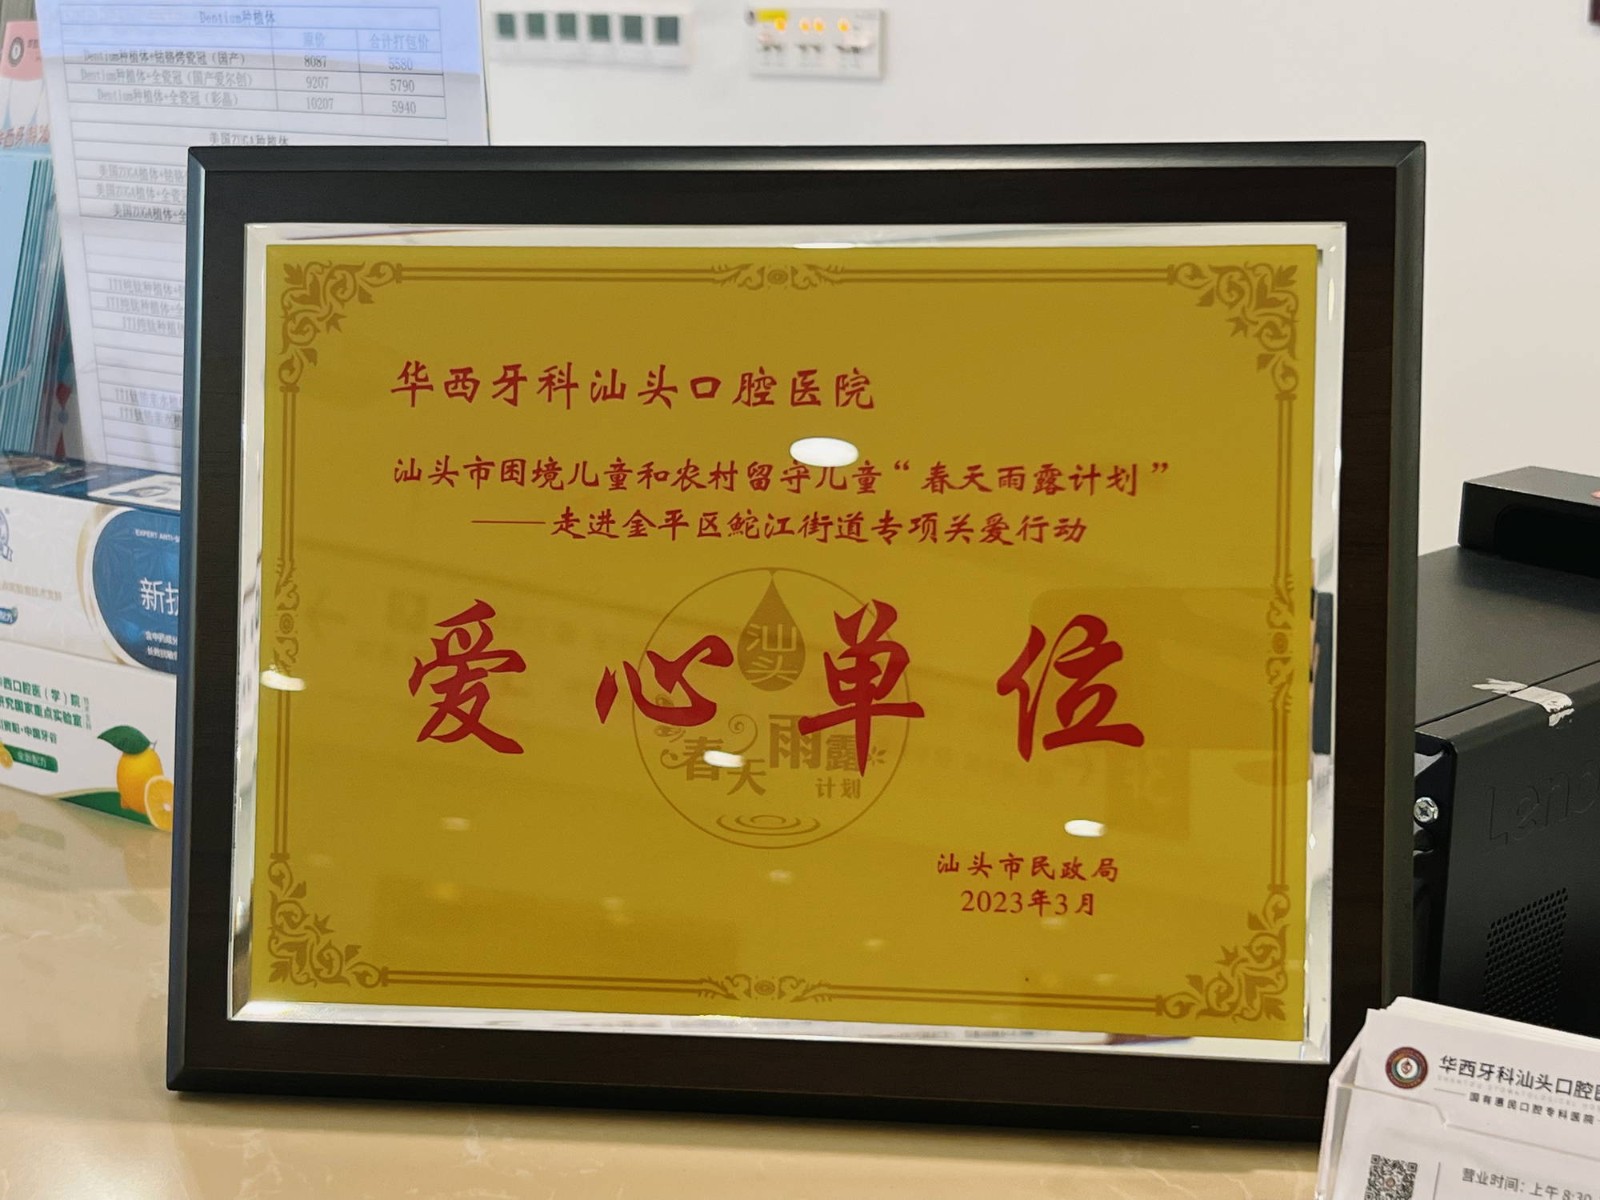 Dentium种植体
原价 合计打包价
Dentium种植体+钴铬烤瓷冠（国产） 8087 5580
Dentium种植体+全瓷冠（国产爱尔创） 9207 5790
Dentium种植体+全瓷冠（彩晶） 10207 5940
美国ZUGA种植体
美国ZUGA植体+钴铬
美国ZUGA植体+全瓷
美国ZUGA植体+全
华西牙科汕头口腔医院
汕头市困境儿童和农村留守儿童“春天雨露计划”
——走进金平区鮀江街道专项关爱行动
爱心单位
汕头
春天雨露
计划
汕头市民政局
2023年3月
EXPERT ANTI-S
新技
西口腔医（学）院
研究国家重点实验室
全新配方
Leno
华西牙科汕头口腔医
国有惠民口腔专科医院
营业时间：上午 8:30